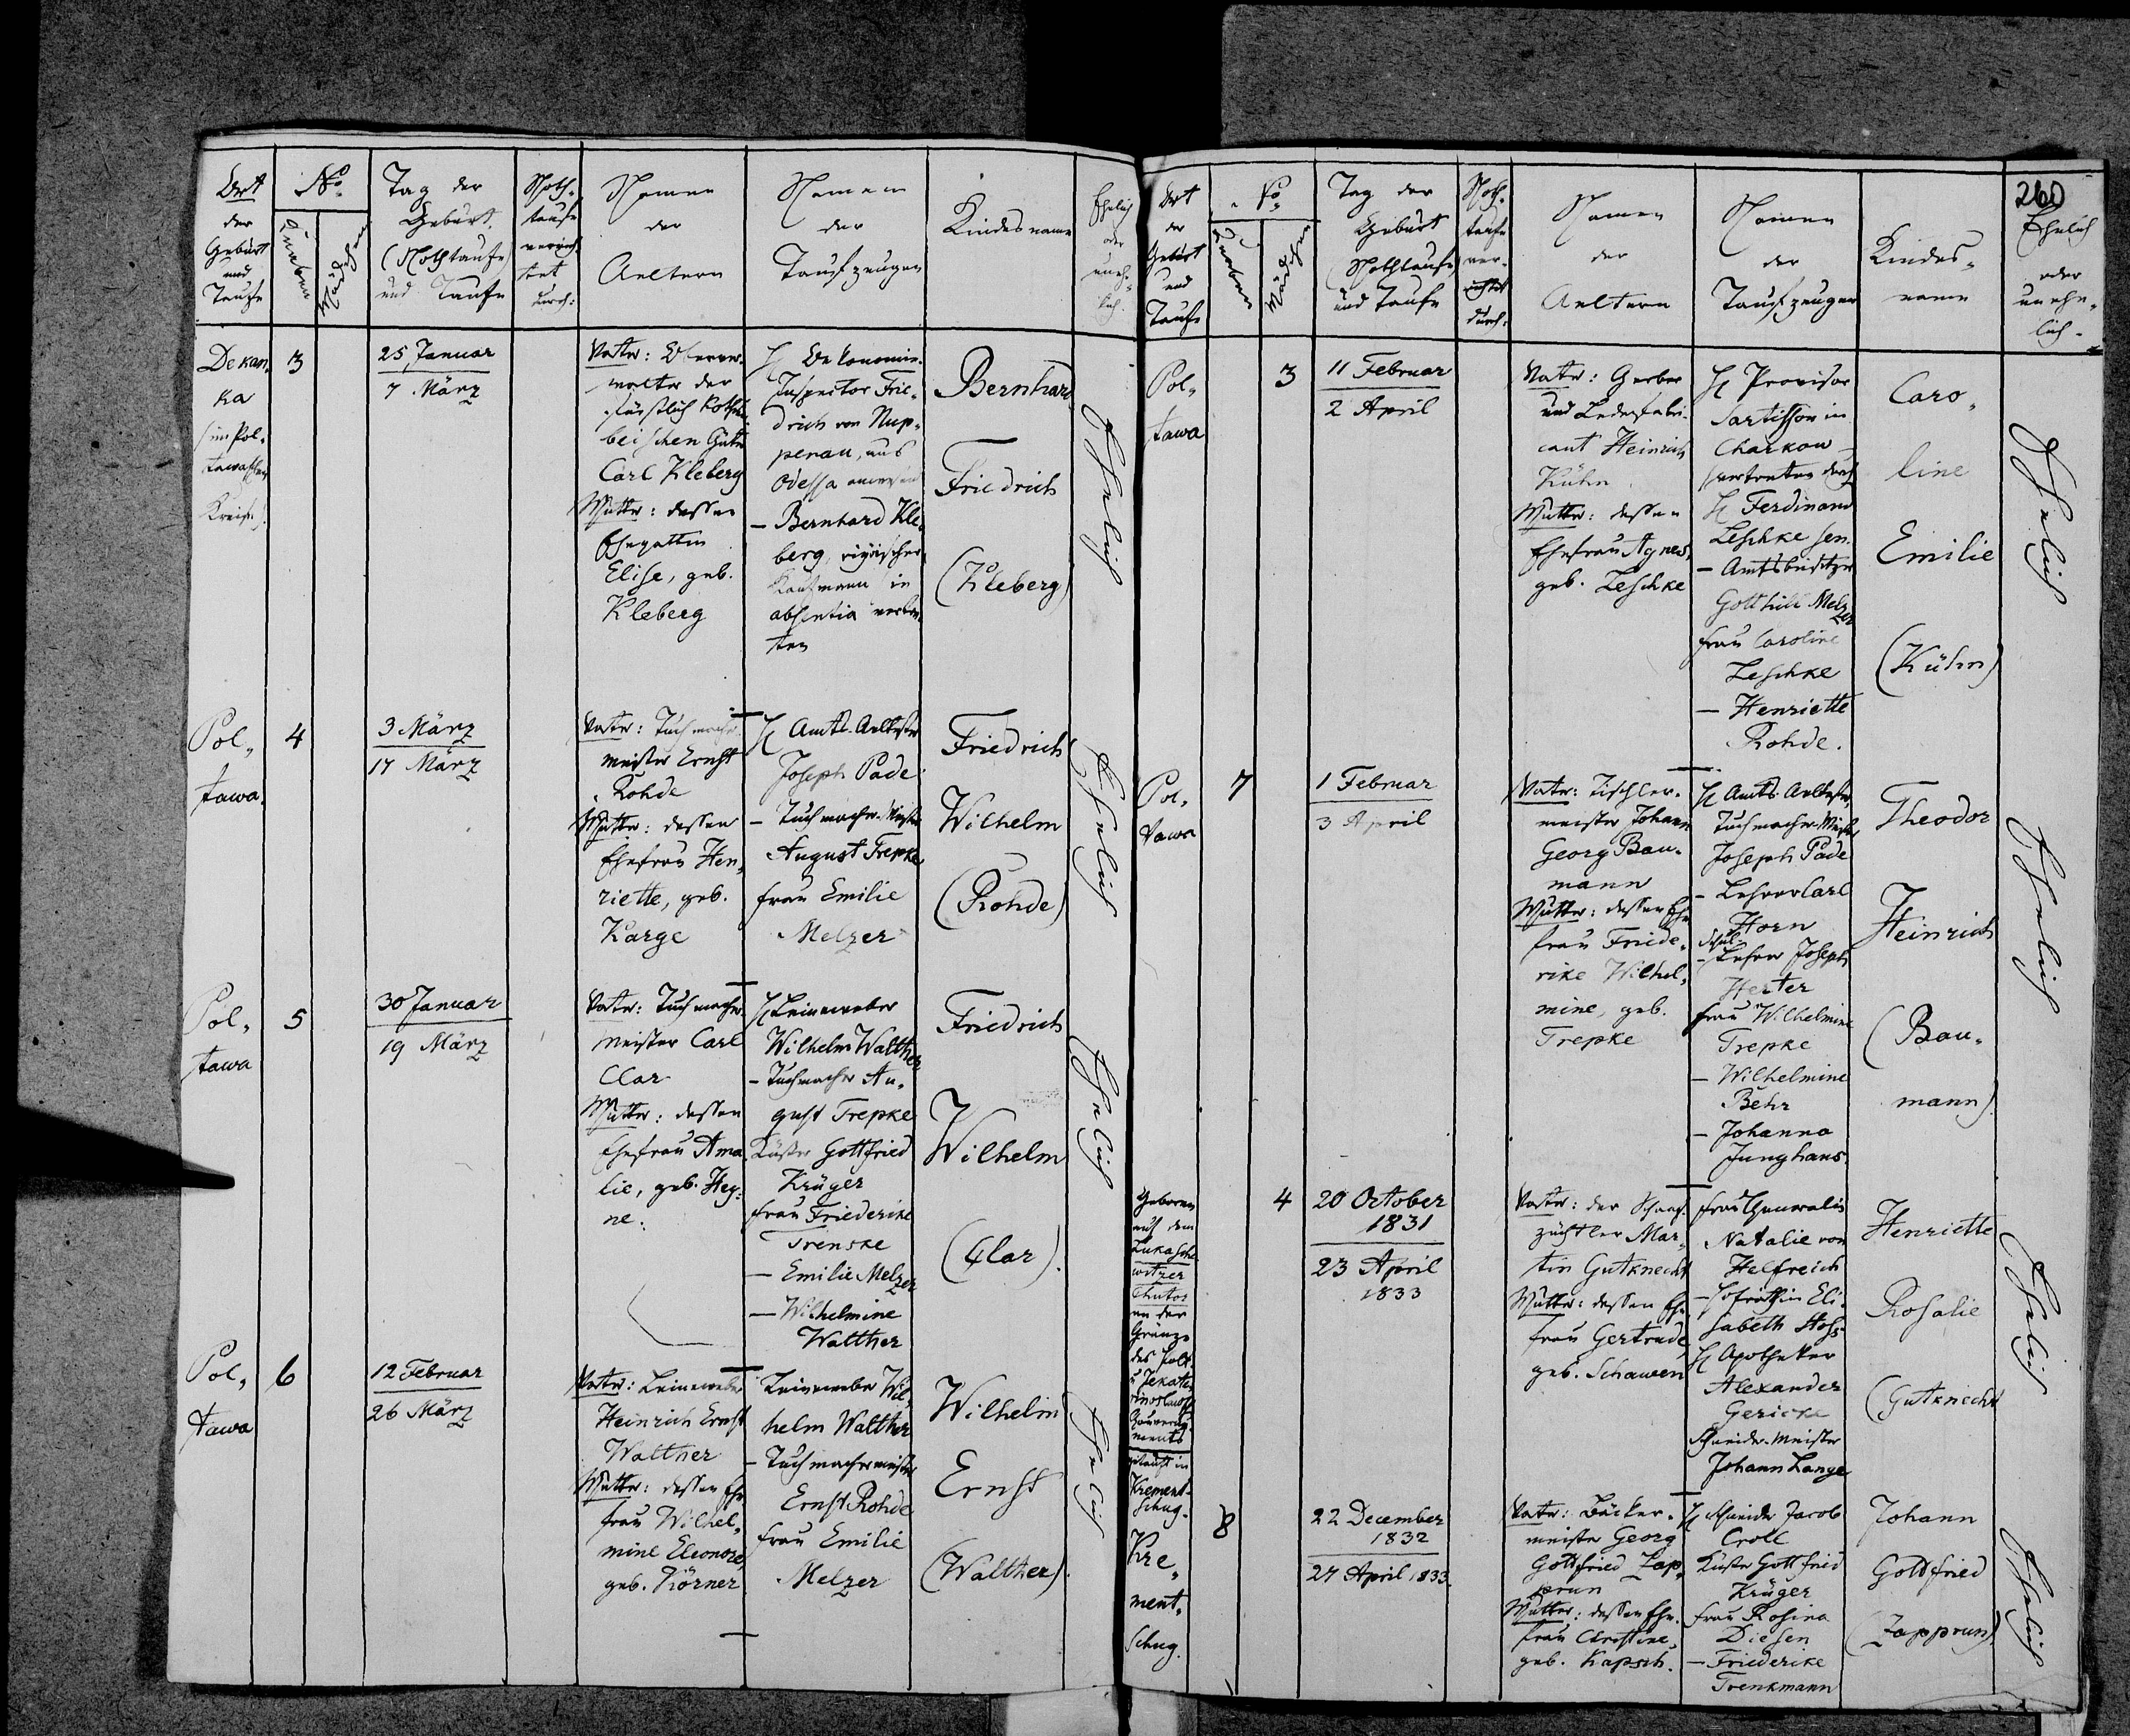 Ort
der
Geburt
und
Taufe
No
Knaben
Mädchen
Tag der
Geburt,
(Nothtaufe)
und Taufe
Noth-
taufe
verrich-
tet
durch:
Namen
der
Aeltern
Namen
der
Taufzeugen
Kindesname
Ehelich
oder
uneh-
lich.
Dekan,
ka
(im Pol-
tawaschen
Kreise).
3
25 Januar
7 März
Vater: Oberver-
walter der
fürstlich Kotschu-
beischen Güter
Carl Kleberg
Mutter: dessen
Ehegattin
Elise, geb.
Kleberg
H Oekonomie-
Inspector Frie-
drich von Nup-
penau, aus
Odessa
– Bernhard Kle-
berg, rigischer
Kaufmann in
absentia vertre-
ten
Bernhard
Friedrich
(Kleberg)
Ehelich
Pol-
tawa.
4
3 März
17 März
Vater: Tuchmacher-
meister Ernst
Rohde
Mutter: dessen
Ehefrau Hen-
riette, geb.
Karge
H Amts-Aeltester
Joseph Pade
– Tuchmacher-Meister
August Trepke
Frau Emilie
Melzer
Friedrich
Wilhelm
(Rohde)
Ehelich
Pol-
tawa
5
30 Januar
19 März
Vater: Tuchmacher-
meister Carl
Clar
Mutter: dessen
Ehefrau Ama-
lie, geb. Hey-
ne.
H Leineweber
Wilhelm Walther
– Tuchmacher Au-
gust Trepke
Küster Gottfried
Krüger
Frau Friederike
Trenske
– Emilie Melzer
– Wilhelmine
Walther
Friedrich
Wilhelm
(Clar).
Ehelich
Pol-
tawa
6
12 Februar
26 März
Vater: Leineweber
Heinrich Ernst
Walther
Mutter: dessen Ehe-
frau Wilhel-
mine Eleonore,
geb. Körner
Leineweber Wil-
helm Walther
– Tuchmachermeister
Ernst Rohde
Frau Emilie
Melzer
Wilhelm
Ernst
(Walther).
Ehelich
260
Ort
der
Geburt
und
Taufe
No
Knaben
Mädchen
Tag der
Geburt
(Nothtaufe)
und Taufe
Noth-
taufe
ver-
richtet
durch:
Namen
der
Aeltern
Namen
der
Taufzeugen
Kindes-
name
Ehelich
oder
unehe-
lich.
Pol-
tawa
3
11 Februar
2 April
Vater: Gerber
und Lederfabri-
cant Heinrich
Kühn
Mutter: dessen
Ehefrau Agnes,
geb. Leschke
H Provisor
in
Charkow –
(vertreten durch
H Ferdinand
Leschke sen.
– Amtsbeisitzer
Gotthilf Melzer
Frau Caroline
Leschke
– Henriette
Rohde.
Caro-
line
Emilie
(Kühn)
Ehelich
Pol-
tawa
7
1 Februar
3 April
Vater: Tischler-
meister Johann
Georg Bau-
mann
Mutter: dessen Ehe-
frau Friede-
rike Wilhel-
mine, geb.
Trepke
H Amts-Aeltester,
Tuchmacher-Meister
Joseph Pade
– Lehrer Carl
Horn
Schul-
– Lehrer Joseph
Herter
Frau Wilhelmine
Trepke
– Wilhelmine
Behr
– Johanna
Junghans.
Theodor
Heinrich
(Bau-
mann).
Ehelich
Geboren
auf dem
Lukasche
witzer
Chutor
an der
Gränze
des Polt.
u Jekate-
rinoslawsch
Gouverne-
ments
getauft in
Krement-
schug.
4
20 October
1831
23 April
1833
Vater: der Schaaf-
züchtler Mar-
tin Gutknecht
Mutter: dessen Ehe-
frau Gertrude,
geb. Schawen
Frau Generalin
Natalie von
Helfreich
– Hofräthin Eli-
sabeth Stoss
H Apotheker
Alexander
Gericke
Schneider-Meister
Johann Lange
Henriette
Rosalie
(Gutknecht)
Ehelich
Kre-
ment-
schug.
8
22 December
1832
27 April 1833.
Vater: Bäcker-
meister Georg
Gottfried Zap-
prun
Mutter: dessen Ehe-
frau Christine,
geb. Kapsch.
H Schneider Jacob
Croll
Küster Gottfried
Krüger
Frau Rosina
Diesen
– Friederike
Trenkmann
Johann
Gottfried
(Zapprun)
Ehelich